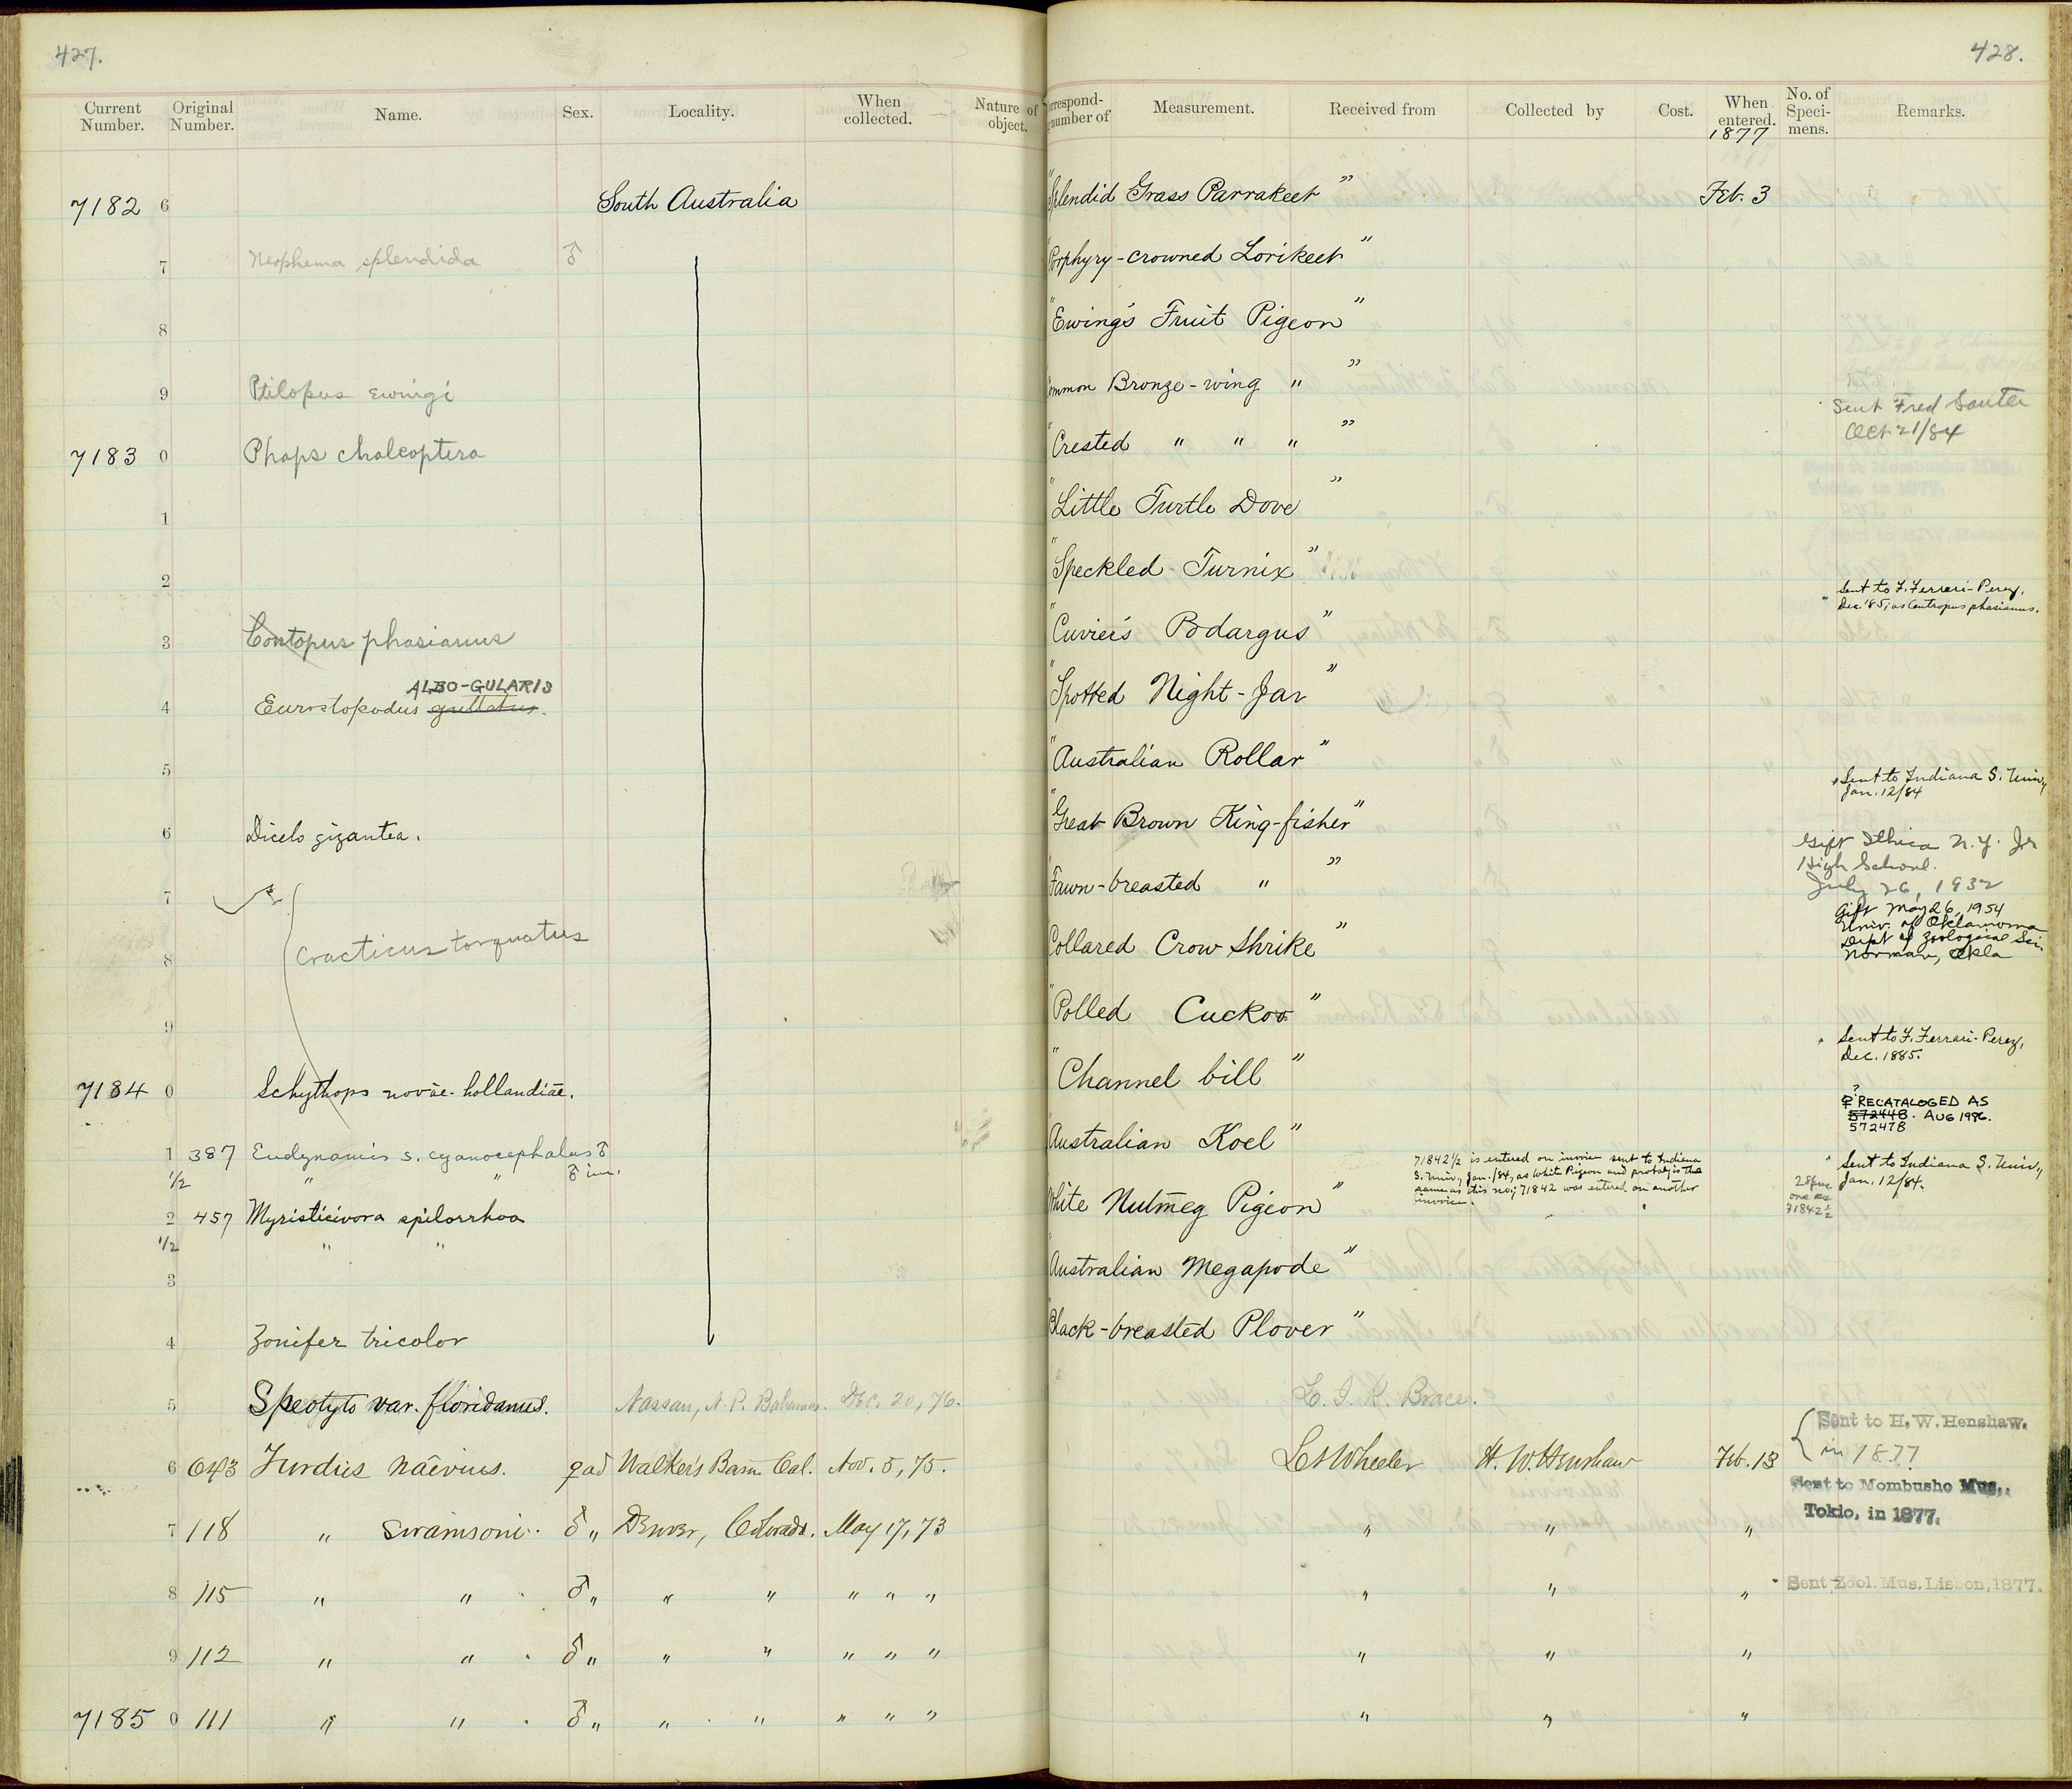 427.
Current Number. Original Number. Name. Sex. Locality. When collected. Nature of object.
7182 6 South Australia
7 Neophema splendida ♂
8
9 Ptilopus Ewingi
7183 0 Phaps chalcoptera
1
2
3 Contopus phasianus
ALBO-GULARIS
4 Eurostopodus guttatus.
5
6 Dicelo gigantea.
7
8 Cracticus torquatus
9
7184 0 Schythops novae-hollandiae.
1 387 Eudynamis s. cyanocephalus ♂
1/2 " " ♂ im.
2 457 Myristicivora spilorrhoa
1/2 " "
3
4 Zonifer tricolor
5 Speotyto var. floridanus. Nassau, N. P. Bahamas. Dec. 20, 76.
6 643 Turdus naevius. ♀ ad Walker's Basin Cal. Nov. 5, 75.
7 118 " swainsoni. ♂ " Denver, Colorado. May 17, 73
8 115 " " ♂ " " " " " "
9 112 " " ♂ " " " " " "
7185 0 111 " " ♂ " " " " " "
428.
orrespond- number of Measurement. Received from Collected by Cost. When entered. No. of Speci- mens. Remarks.
1877
"Splendid Grass Parrakeet" Feb. 3
"Porphyry-crowned Lorikeet"
"Ewing's Fruit Pigeon"
ommon Bronze-wing " "
Sent Fred Sauter
Oct 21/84
"Crested " " " "
"Little Turtle Dove"
"Speckled Turnix"
Sent to F. Ferrari-Perez,
Dec. '85, as Centropus phasianus.
"Cuvier's Podargus"
"Spotted Night-Jar"
"Australian Rollar"
Sent to Indiana S. Univ,
Jan. 12/84
"Great Brown King-fisher"
Gift Ithica N.Y. Jr
High School.
July 26, 1932
"Fawn-breasted " "
Gift May 26, 1954
Univ. of Oklahoma
Dept of Zoological Sci.
Norman, Okla
Collared Crow Shrike"
"Polled Cuckoo"
Sent to F. Ferrari-Perez,
Dec. 1885.
"Channel bill"
? ♀ RECATALOGED AS
572448. AUG 1986.
572478
Australian Koel"
71842 1/2 is entered on invoice sent to Indiana
S. Univ., Jan. /84, as White Pigeon and probably is the
same as this no; 71842 was entered on another
invoice.
Sent to Indiana S. Univ.,
Jan. 12/84.
one as
71842 1/2
White Nutmeg Pigeon"
Australian Megapode"
Black-breasted Plover"
L. J. K. Brace.
Sent to H. W. Henshaw.
in 1877
Lt Wheeler H. W. Henshaw Feb. 13
Sent to Mombusho Mus.,
Tokio, in 1877.
" " "
" " " Sent Zool. Mus. Lisbon, 1877.
" " "
" " "